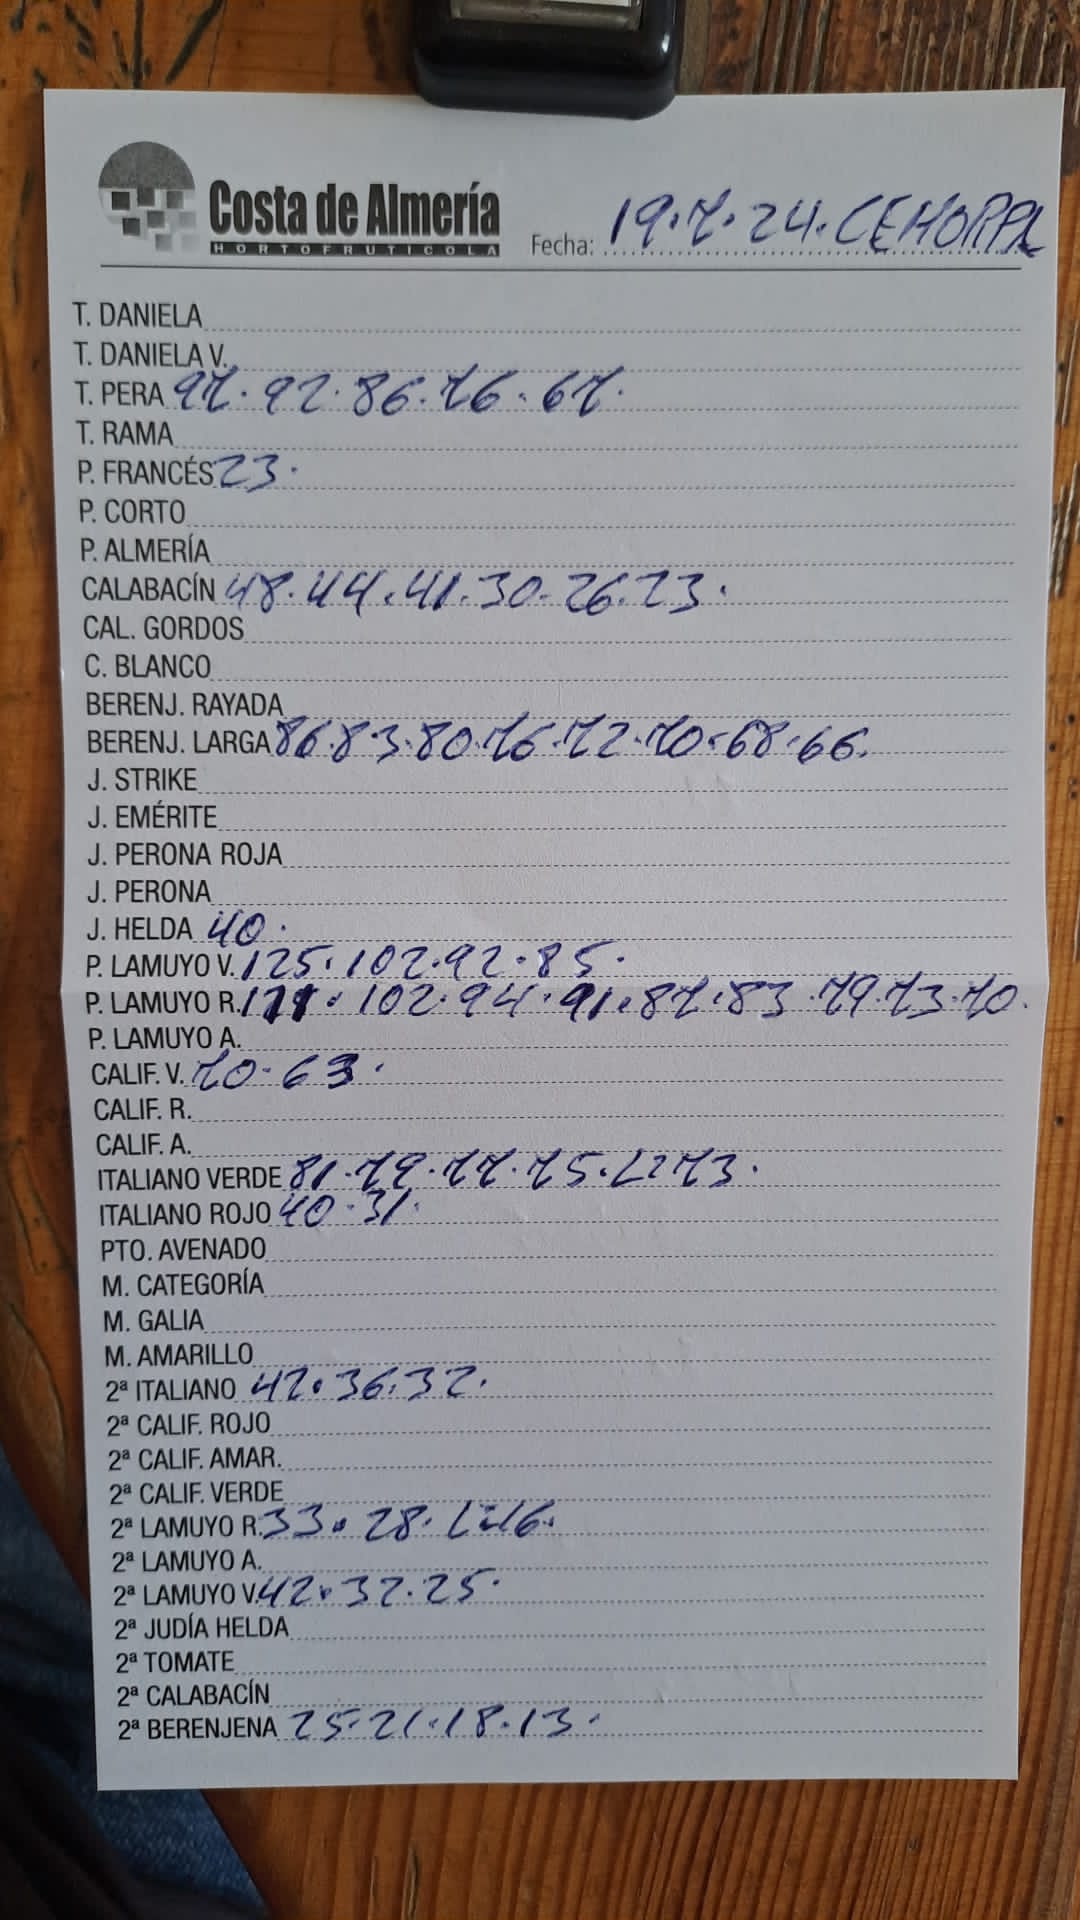 Costa de Almería
HORTOFRUTICOLA
Fecha: 19.7.24. CEHORPA
T. DANIELA
T. DANIELA V.
T. PERA 97. 92. 86. 76. 67.
T. RAMA
P. FRANCÉS 23.
P. CORTO
P. ALMERÍA
CALABACÍN 48. 44. 41. 30. 26. 23.
CAL. GORDOS
C. BLANCO
BERENJ. RAYADA
BERENJ. LARGA 86. 83. 80. 76. 72. 70. 68. 66.
J. STRIKE
J. EMÉRITE
J. PERONA ROJA
J. PERONA
J. HELDA 40.
P. LAMUYO V. 125. 102. 92. 85.
P. LAMUYO R. 102. 94. 91. 87. 83. 79. 73. 70.
P. LAMUYO A.
CALIF. V. 70. 63.
CALIF. R.
CALIF. A.
ITALIANO VERDE 81. 79. 77. 75. 73.
ITALIANO ROJO 40. 31.
PTO. AVENADO
M. CATEGORÍA
M. GALIA
M. AMARILLO
2ª ITALIANO 42. 36. 32.
2ª CALIF. ROJO
2ª CALIF. AMAR.
2ª CALIF. VERDE
2ª LAMUYO R. 33. 28. 16.
2ª LAMUYO A.
2ª LAMUYO V. 42. 32. 25.
2ª JUDÍA HELDA
2ª TOMATE
2ª CALABACÍN
2ª BERENJENA 25. 21. 18. 13.